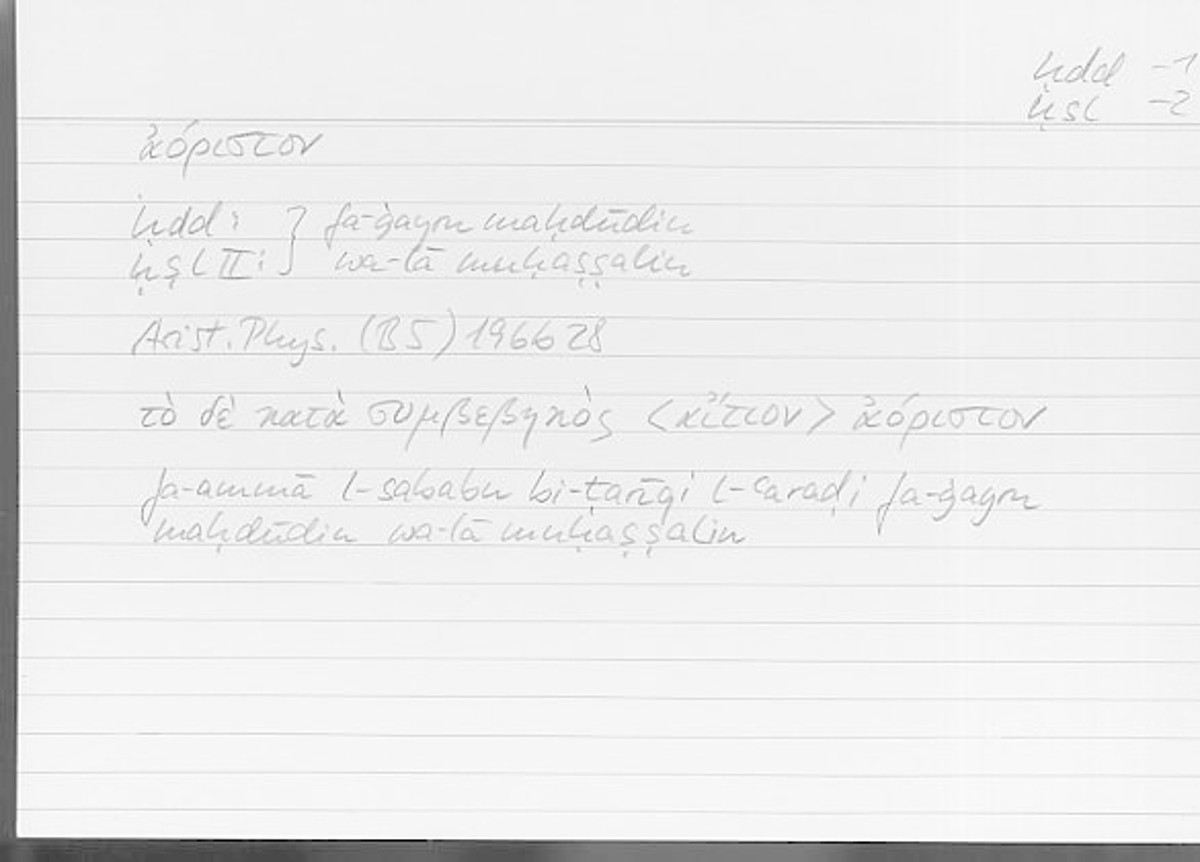 ḥdd -1
ḥsl -2
ἀόριστον
ḥdd: } fa-ġayru maḥdūdin
ḥṣl II: wa-lā muḥaṣṣalin
Arist. Phys. (B5) 196b28
τὸ δὲ κατὰ συμβεβηκὸς <αἴτιον> ἀόριστον
fa-ammā l-sababu bi-ṭarīqi l-ʿaraḍi fa-ġayru
maḥdūdin wa-lā muḥaṣṣalin